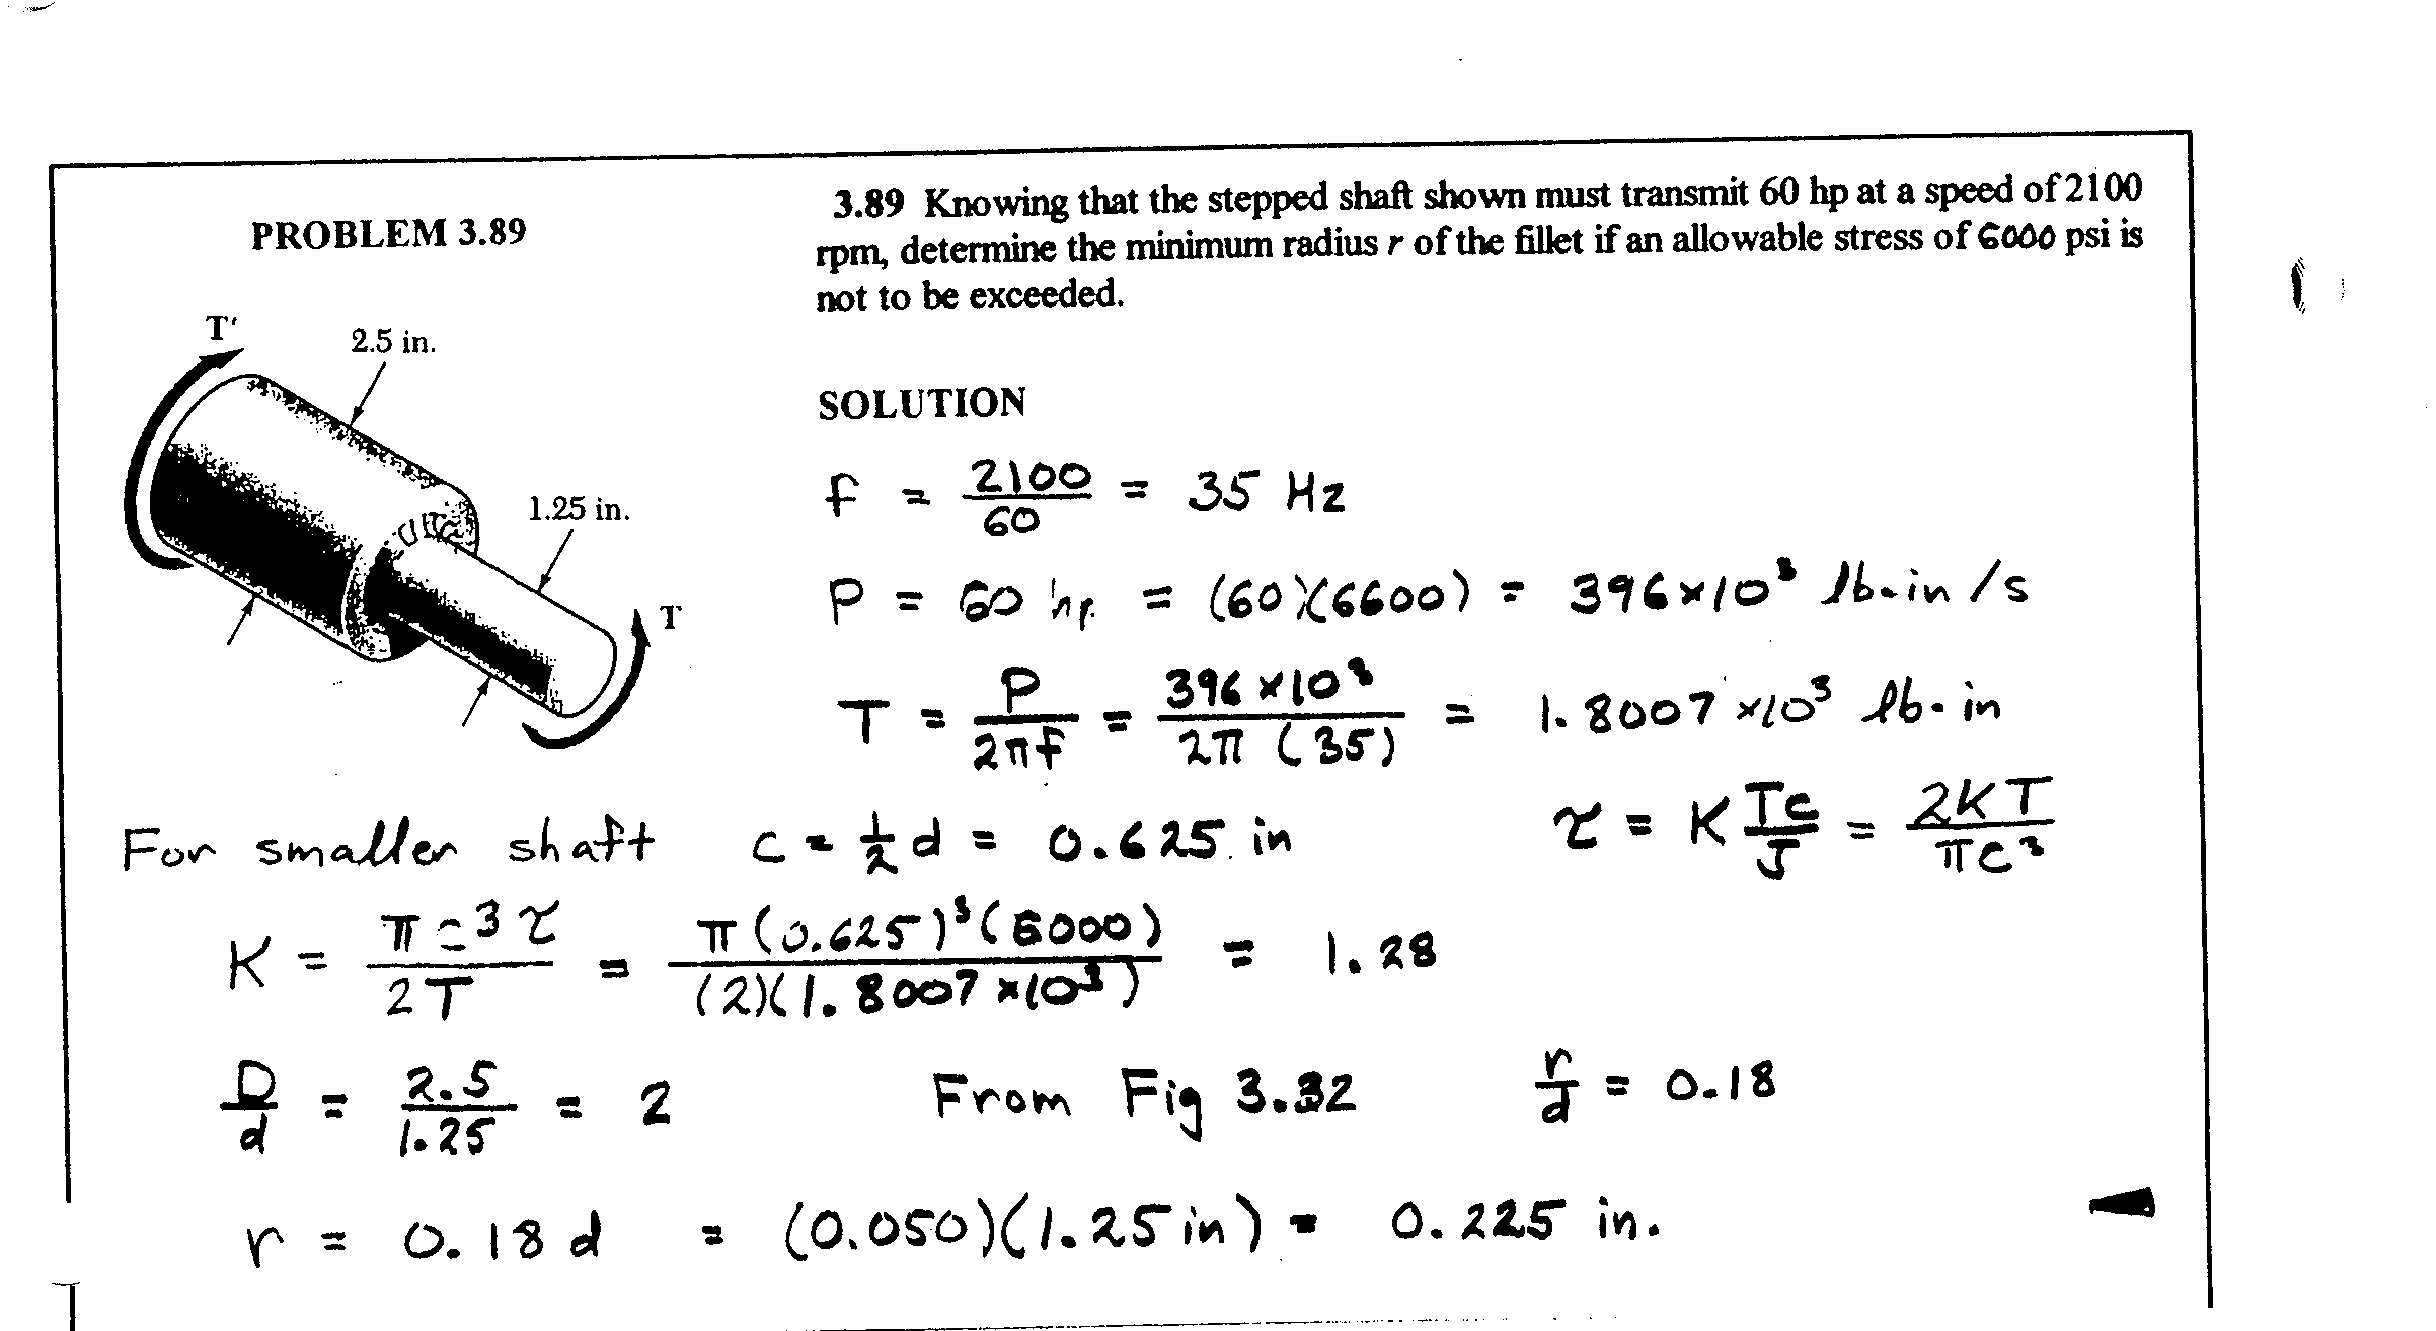 PROBLEM 3.89
3.89 Knowing that the stepped shaft shown must transmit 60 hp at a speed of 2100
rpm, determine the minimum radius r of the fillet if an allowable stress of 6000 psi is
not to be exceeded.
T'
2.5 in.
1.25 in.
T
SOLUTION
f = 2100/60 = 35 Hz
P = 60 hp = (60)(6600) = 396×10³ lb·in/s
T = P/2πf = 396×10³/2π(35) = 1.8007×10³ lb·in
For smaller shaft c = ½d = 0.625 in τ = K Tc/J = 2KT/πc³
K = πc³τ/2T = π(0.625)³(6000)/(2)(1.8007×10³) = 1.28
D/d = 2.5/1.25 = 2 From Fig 3.32 r/d = 0.18
r = 0.18 d = (0.050)(1.25 in) = 0.225 in.